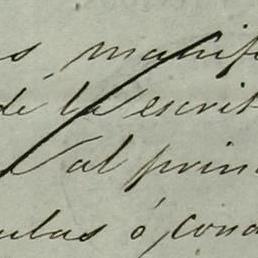 s, manife
de la escrit
al prin
ulas ó cond